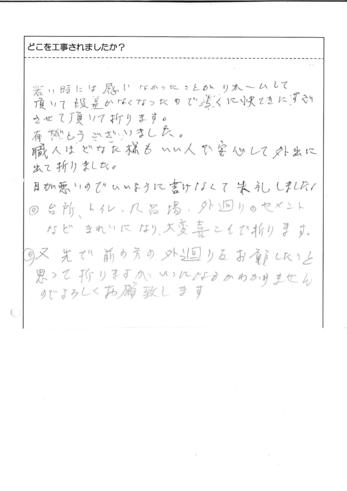 どこを工事されましたか？
若い時には感じなかったことがリホームして
頂いて段差がなくなったので凄くに快てきにすごさ
させて頂いて折ります。
有がとうございました。
職人はどなた様もいい人で安心して外出に
出て折りました。
目が悪いのでいいように書けなくて失礼しました
◎台所、トイレ、凡呂場、外廻りのセメント
など きれいになり、大変喜こんで折ります。
◎又 先で前の方の外廻りをお願したいと
思って折りますが、いつになるかわかりません
のでよろしくお願致します